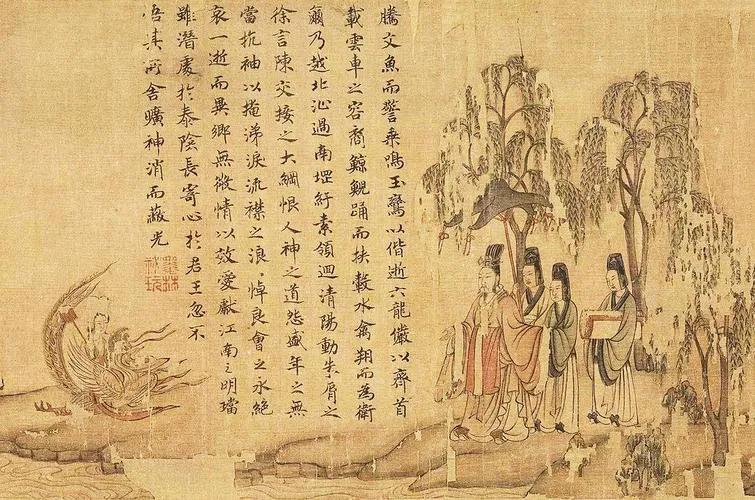 騰文魚而警乘鳴玉鸞以偕逝六龍儼以齊首
載雲車之容裔鯨鯢踊而挾轂水禽翔而為衛
爾乃越北沚過南堽紆素領迴清陽動朱脣之
徐言陳交接之大綱恨人神之道怨盛年之無
當抗袖以掩涕淚流襟之浪、悼良會之永絕
哀一逝而異鄉無微情以效愛獻江南之明璫
雖潛處於泰陰長寄心於君王忽不
悟其所舍曠神消而蔽光